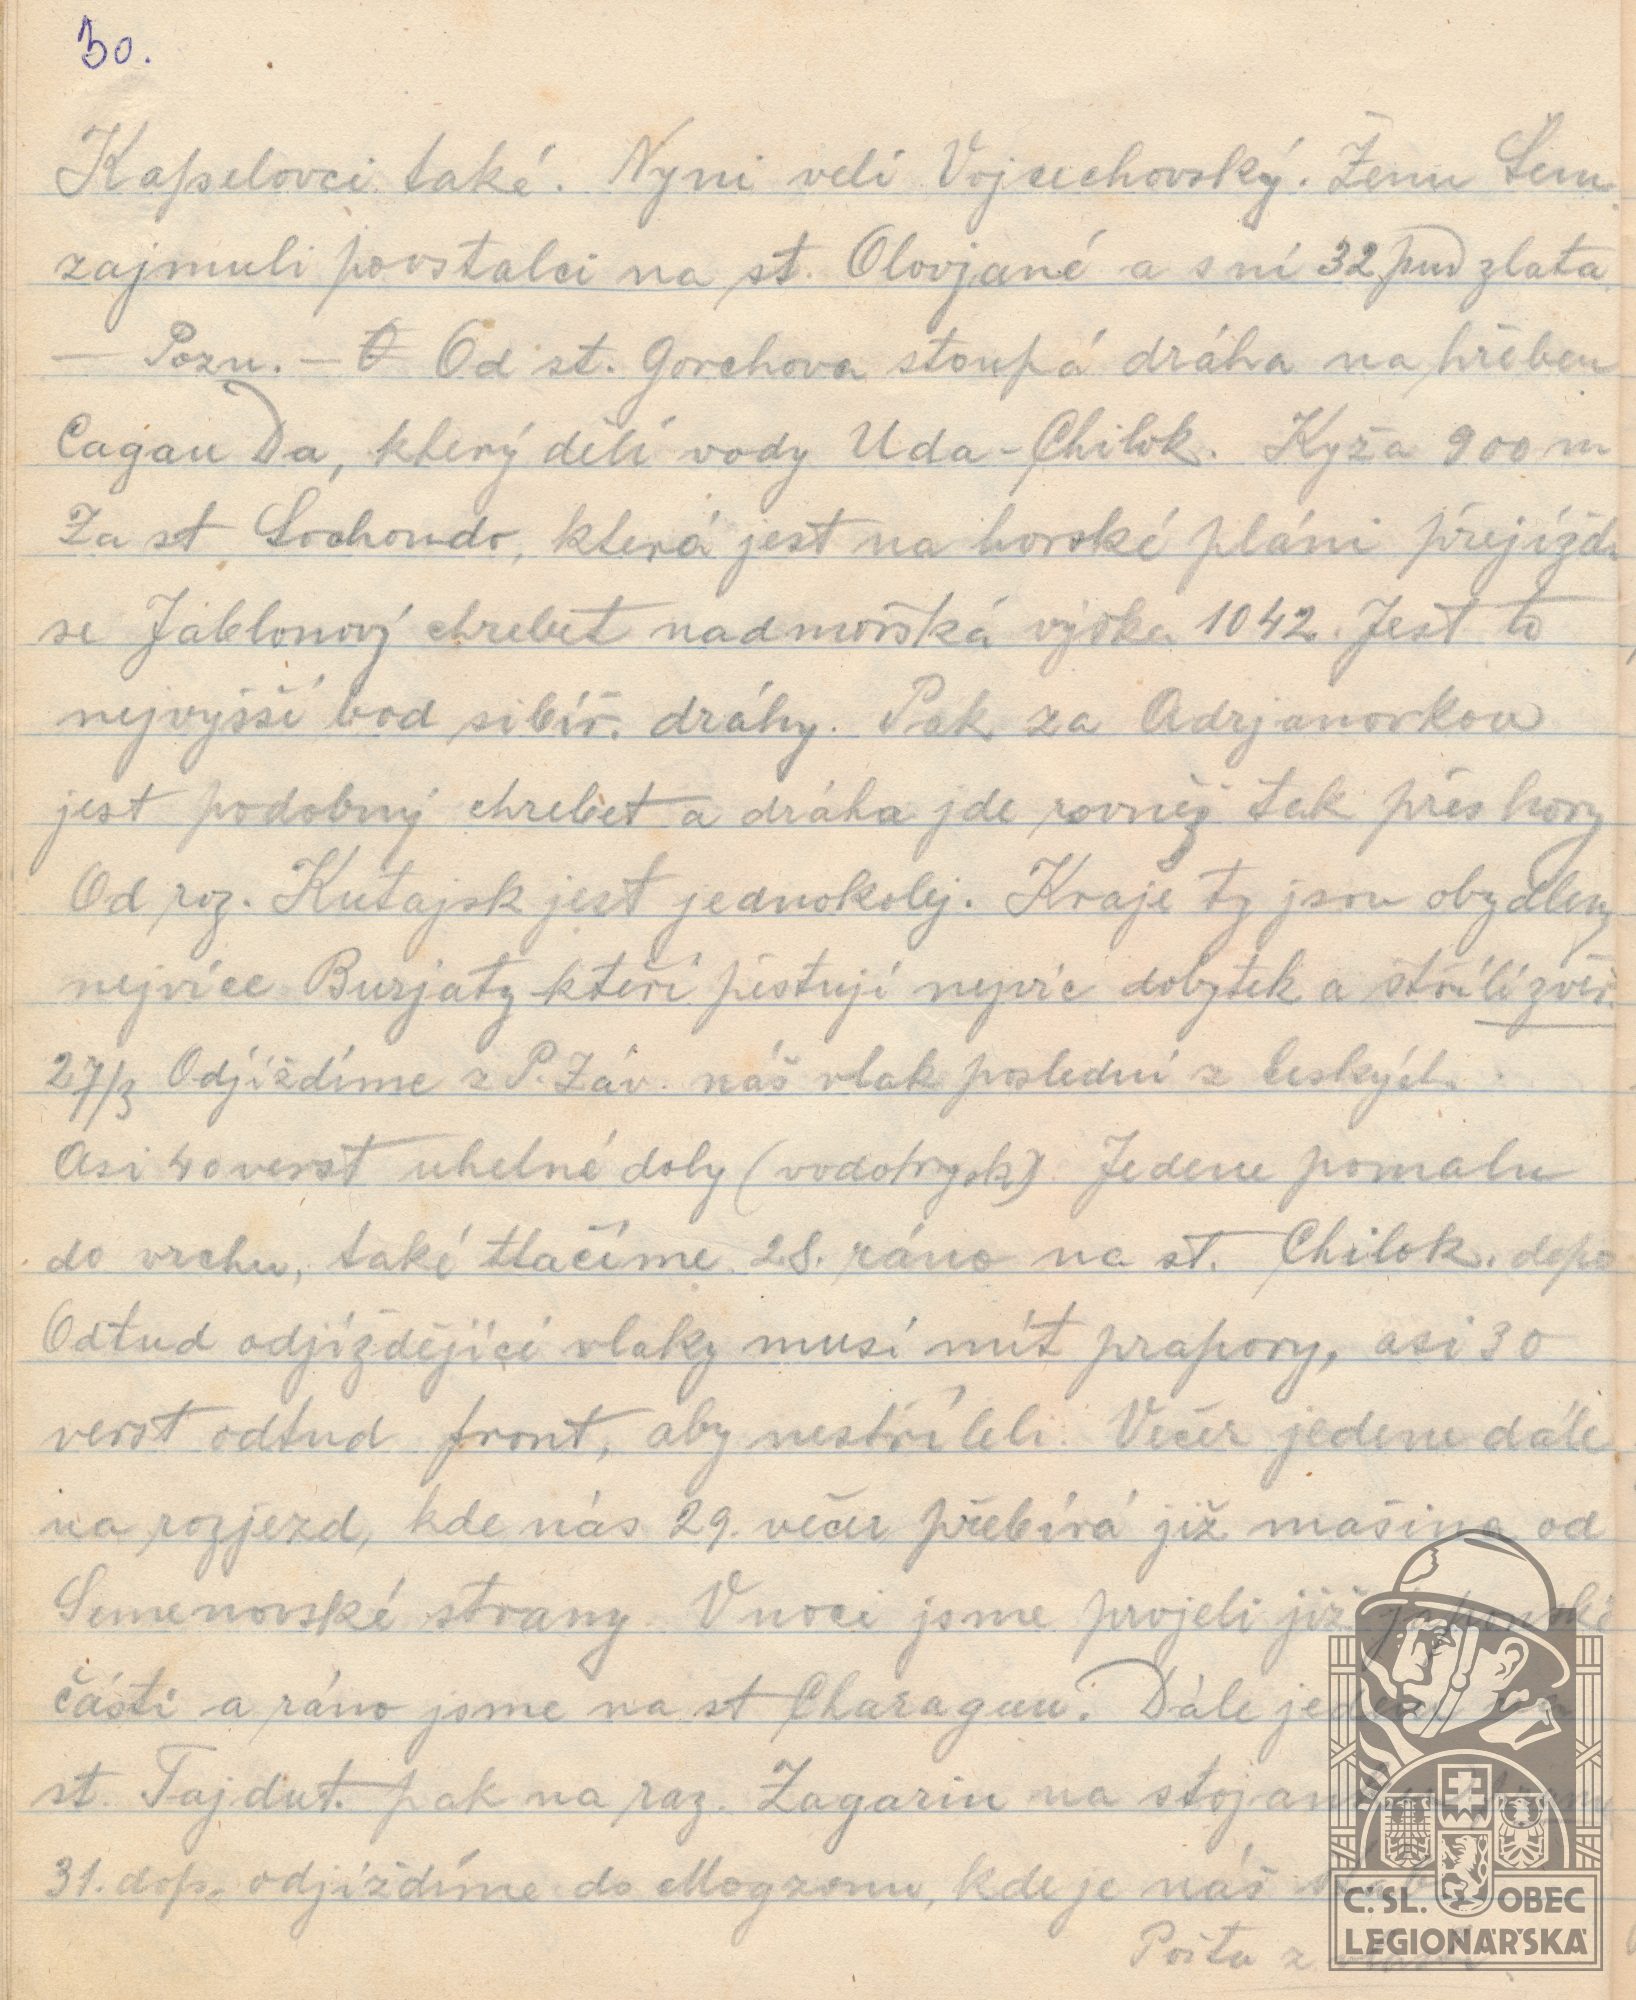 30.
Kapselovci také. Nyni velí Vojcechovský. Ženu Sem.
zajmuli povstalci na st. Olovjané a s ní 32 pud zlata.
— Pozn. — Od st. Gorchova stoupá dráha na hřeben
Cagan Da, který dělí vody Uda-Chilok. Kyža 900 m
Za st Sochondo, která jest na horské pláni přejíždí
se Jablonový chrebet nadmořská výška 1042. Jest to
nejvyšší bod sibíř. dráhy. Pak za Adrjanovkou
jest podobný chrebet a dráha jde rovněž tak přes hory
Od roz. Kutajsk jest jednokolej. Kraje ty jsou obydleny
nejvíce Burjaty kteří pěstují nejvíc dobytek a střílí zvěř.
27/3 Odjíždíme z P. Záv. náš vlak poslední z českých.
Asi 40 verst uhelné doly (vodotrysk) Jedeme pomalu
do vrchu, také tlačíme. 28. ráno na st. Chilok. depo
Odtud odjíždějící vlaky musí mít prapory, asi 30
verst odtud front, aby nestříleli. Večer jedeme dále
na rozjezd, kde nás 29. večer přebírá již mašina od
Semenovské strany. V noci jsme projeli již japonské
části a ráno jsme na st Charagun. Dále jedeme
st. Tajdut. pak na raz. Zagarin na
31. dop. odjíždíme do Mogzonu, kde je náš
Pošta z
C. SL. OBEC
LEGIONÁŘSKÁ